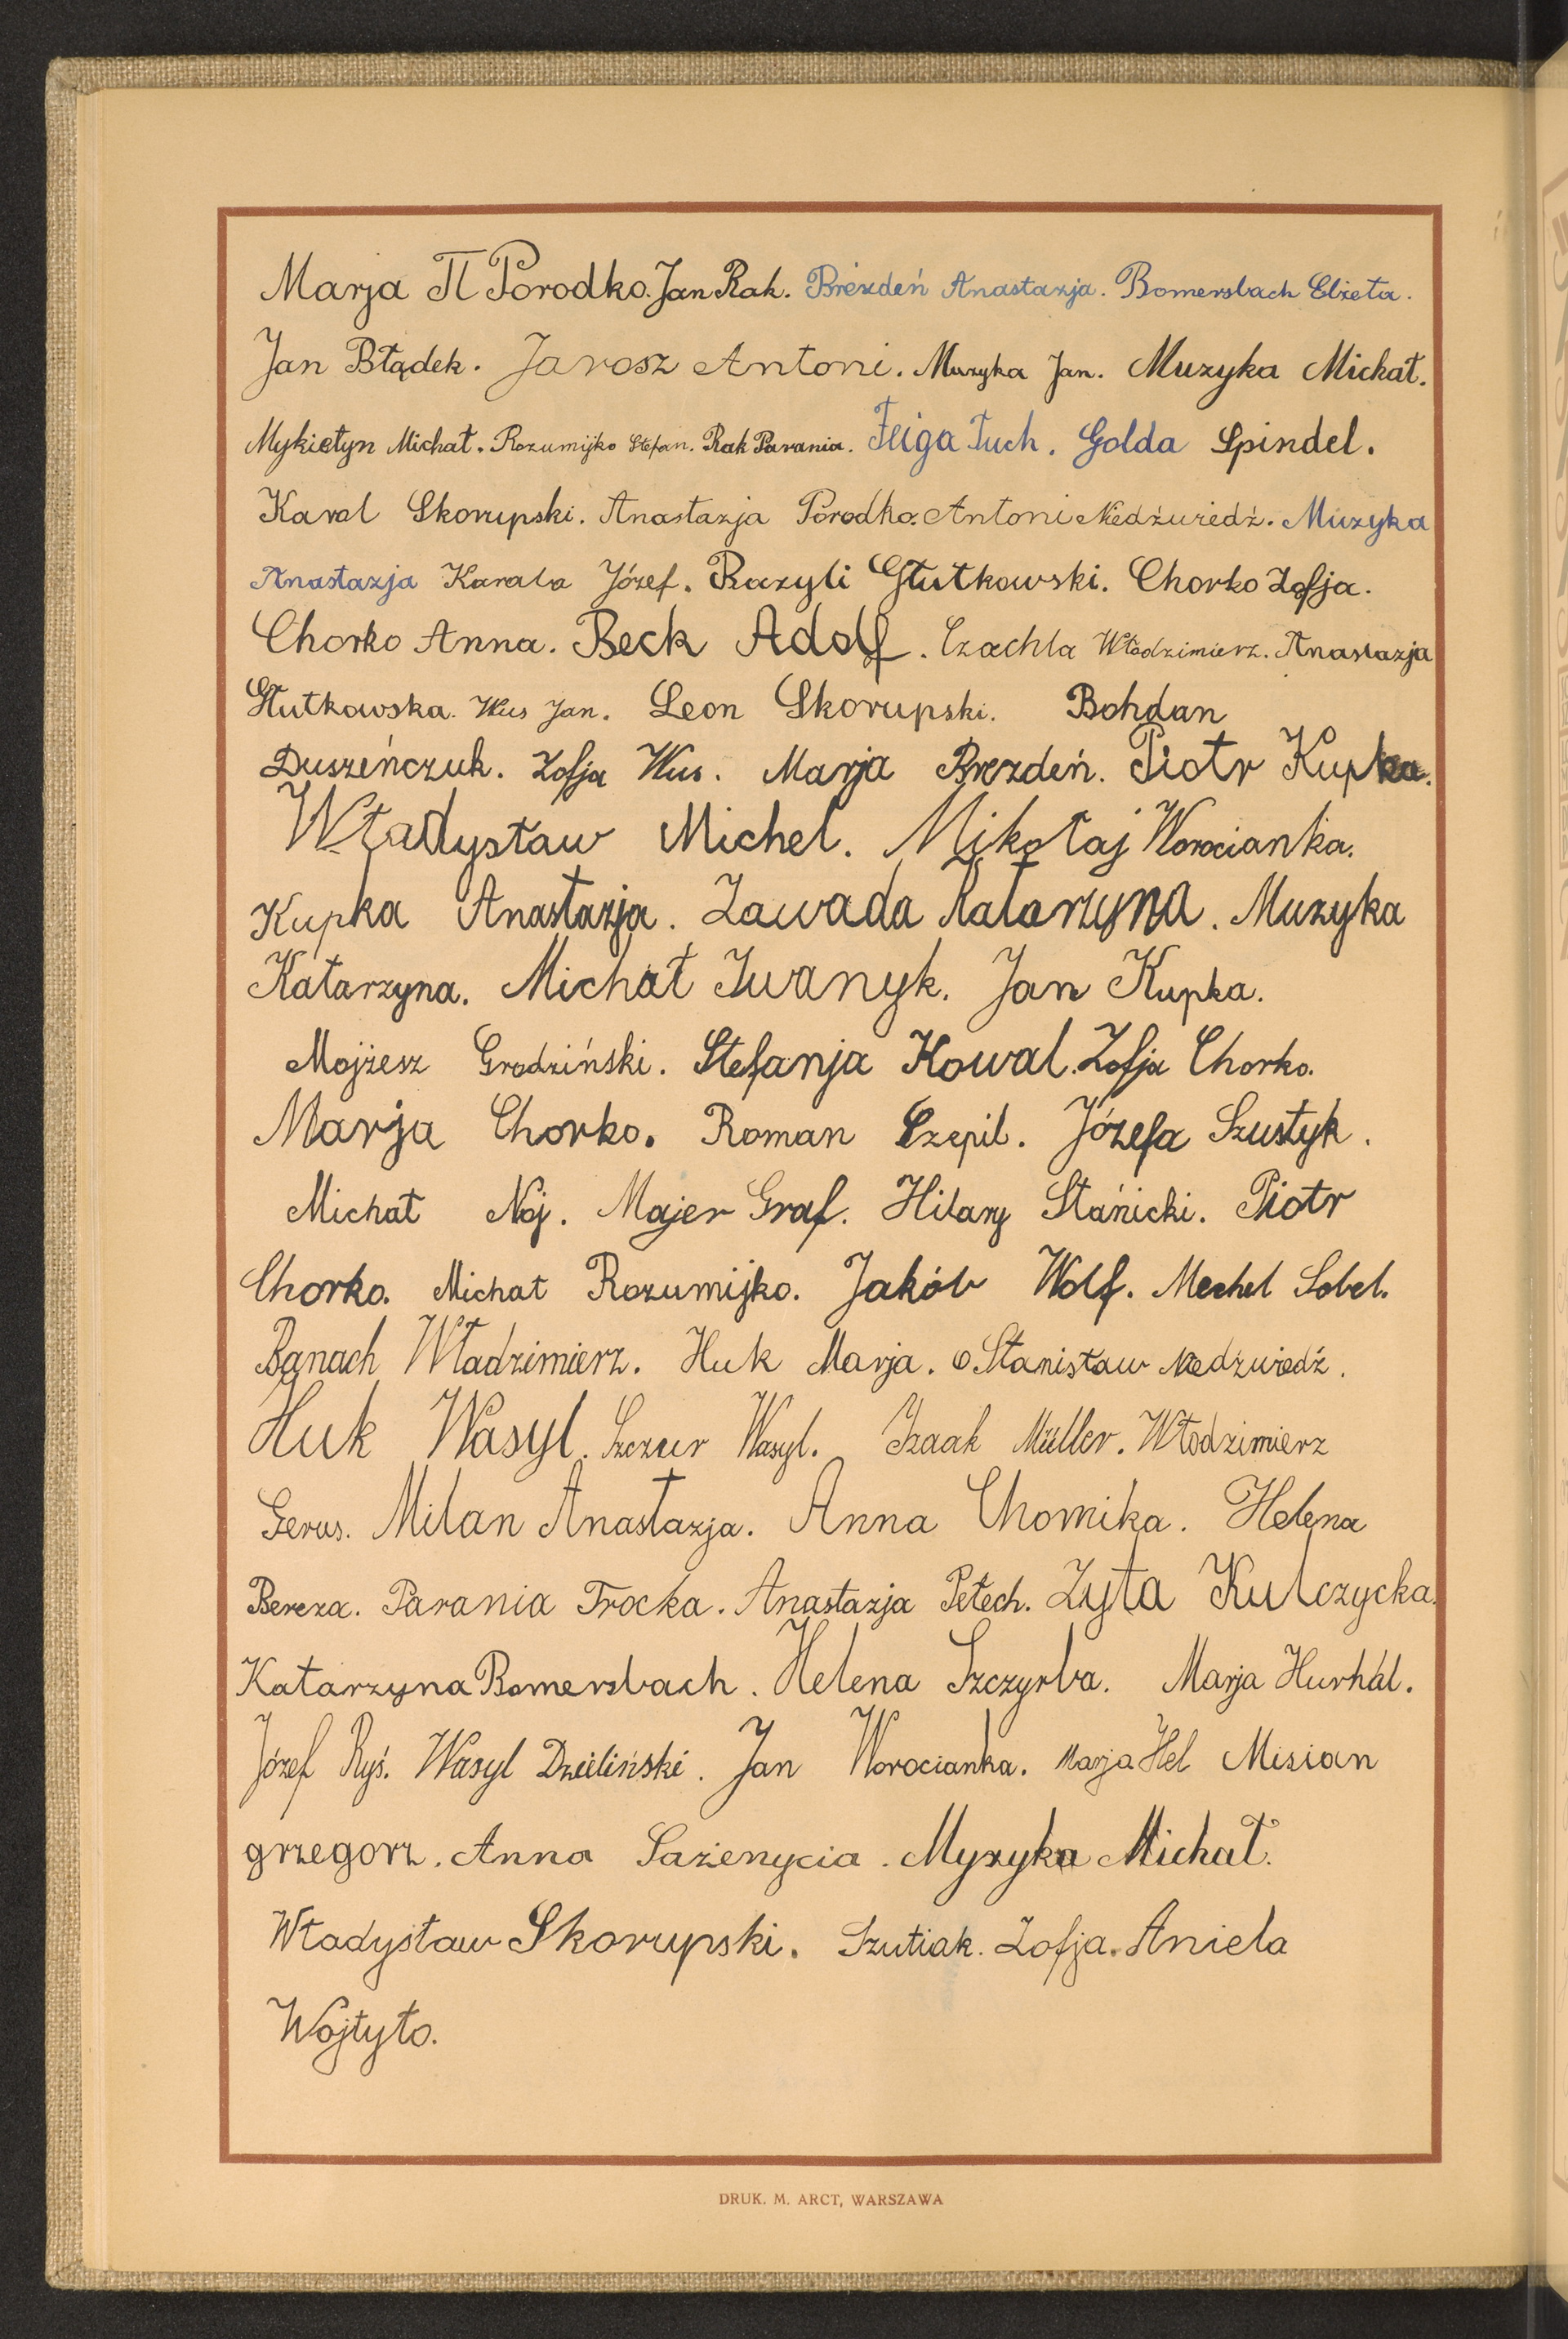 Marja П Porodko. Jan Rak. Brézdeń Anastazja. Bomersbach Elżeta.
Jan Błądek. Jarosz Antoni. Muzyka Jan. Muzyka Michał.
Mykietyn Michał. Rozumijko Stefan. Rak Parania. Feiga Tuch. Golda Spindel.
Karol Skorupski. Anastazja Porodko. Antoni Niedźwiedź. Muzyka
Anastazja Karala Józef. Bazyli Głutkowski. Chorko Zofja.
Chorko Anna. Beck Adolf. Czachla Włodzimierz. Anastazja
Głutkowska. Wus Jan. Leon Skorupski. Bohdan
Duszeńczuk. Zofja Wus. Marja Brezdeń. Piotr Kupka.
Władysław Michel. Mikołaj Worocianka.
Kupka Anastazja. Zawada Katarzyna. Muzyka
Katarzyna. Michał Iwanyk. Jan Kupka.
Mojżesz Grodziński. Stefanja Kowal. Zofja Chorko.
Marja Chorko. Roman Szepil. Józefa Szustyk.
Michał Noj. Majer Graf. Hilary Stańicki. Piotr
Chorko. Michał Rozumijko. Jakób Wolf. Mechel Sobel.
Banach Władzimierz. Huk Marja. Stanisław Niedźwiedź.
Huk Wasyl. Szczur Wasyl. Izaak Müller. Włodzimierz
Gerus. Milan Anastazja. Anna Chomika. Helena
Bereza. Parania Trocka. Anastazja Petech. Zyta Kulczycka.
Katarzyna Bomersbach. Helena Szczyrba. Marja Hurhal.
Józef Ryś. Wasyl Dzieliński. Jan Worocianka. Marja Hel Misian
grzegorz. Anna Sażenycia. Myzyka Michał.
Władysław Skorupski. Szutiak. Zofja. Aniela
Wojtyło.
DRUK. M. ARCT, WARSZAWA